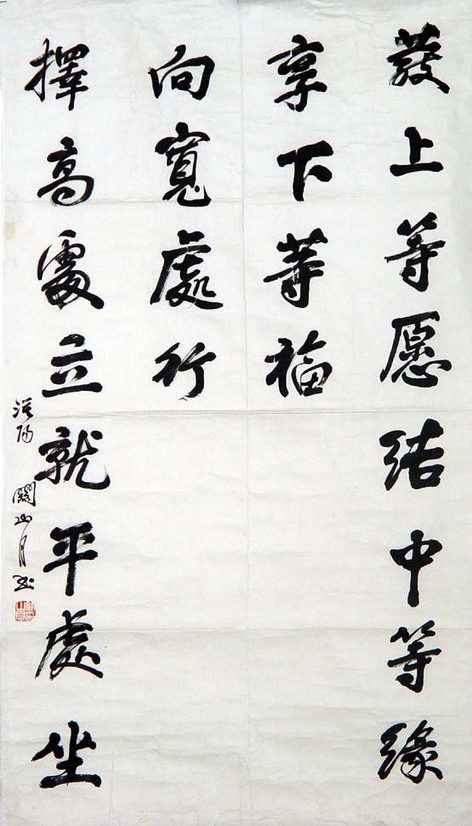 發上等愿結中等緣
享下等福
擇高處立就平處坐
向寬處行
漠陽 關山月書